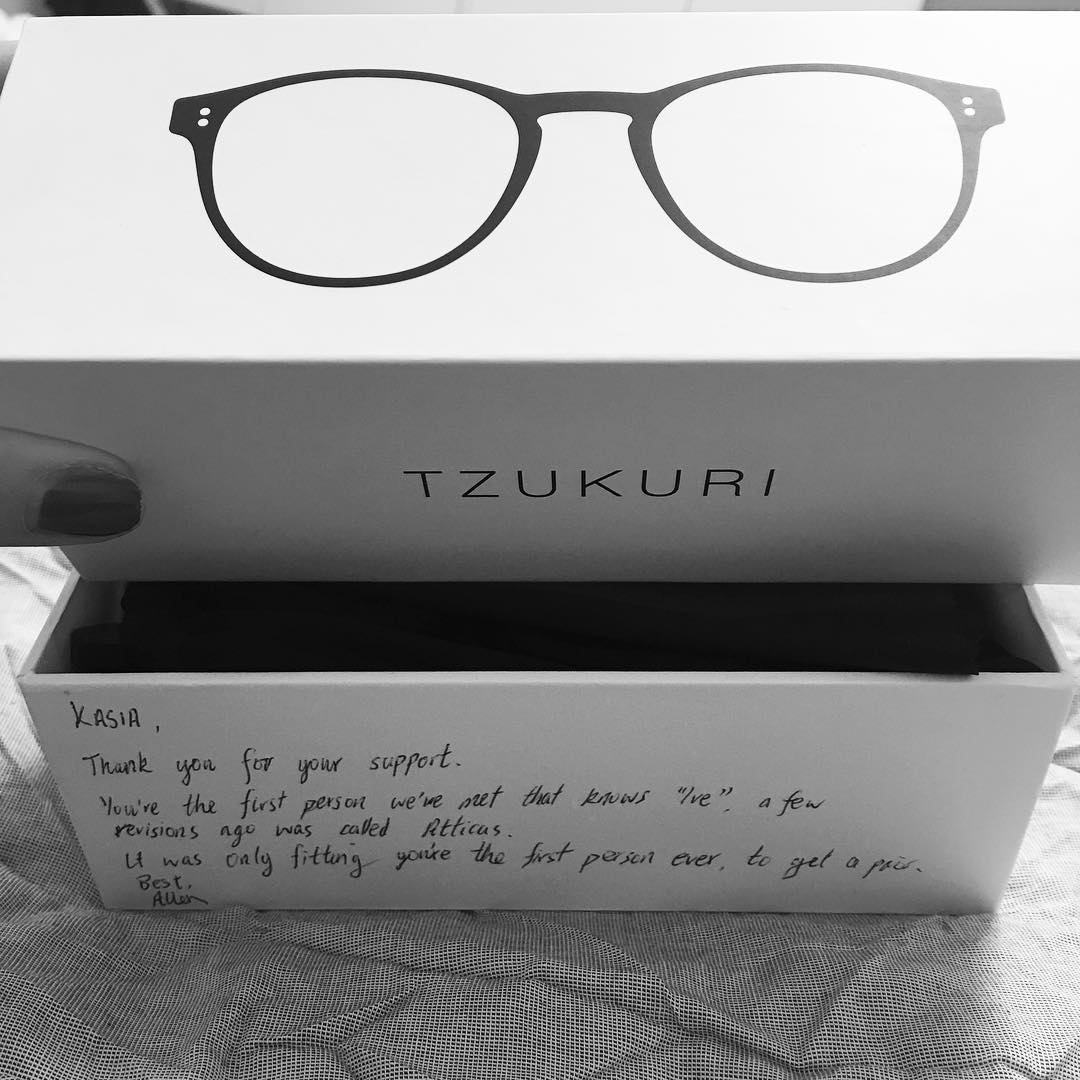 TZUKURI
KASIA,
Thank you for your support.
You're the first person we've met that knows "Ive", a few
revisions ago was called Atticus.
It was only fitting you're the first person ever, to get a pair.
Best,
Allen